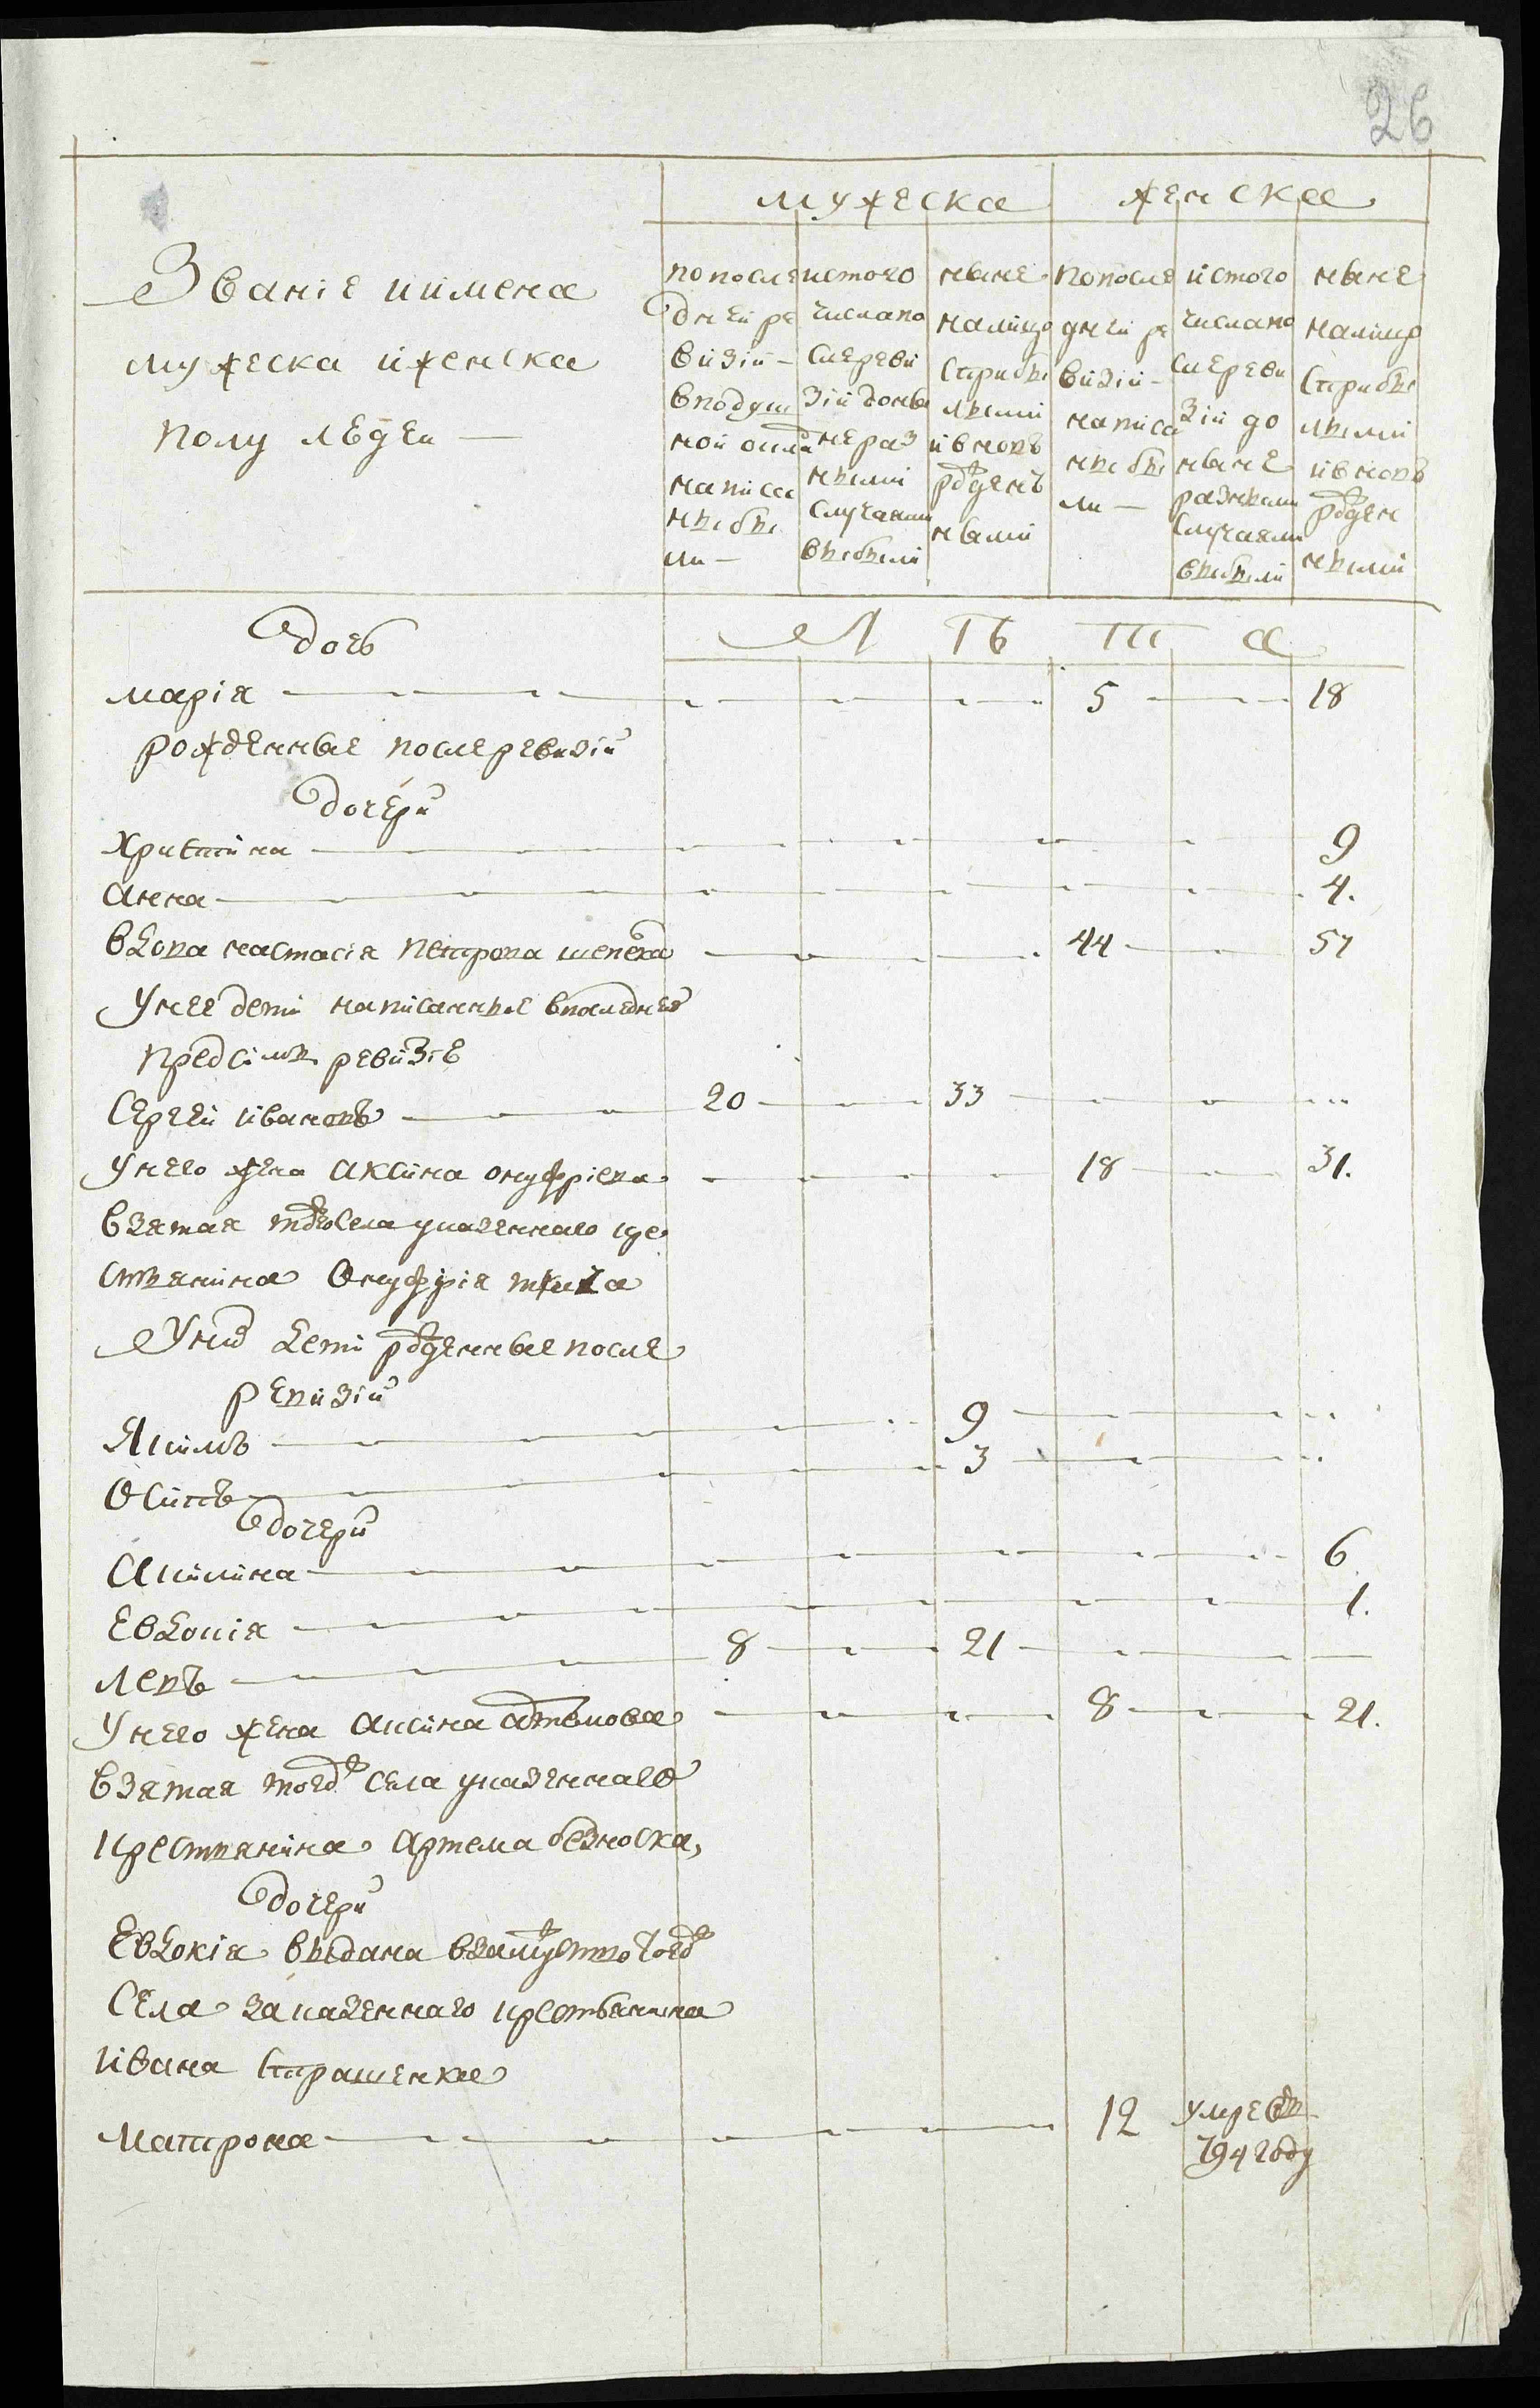 26
мужеска женска
Званіе иимена
мужеска иженска
полу людей —
попосле
дней ре
визіи —
вподуш
ной
написа
ны бы
ли —
истого
числапо
слереви
зіи доны
не раз
ными
случаями
выбыли
ныне
налицо
сприбы
лыми
ивновь
рожден
ными
попосле
дней ре
визіи —
написа
ны бы
ли —
истого
числапо
слереви
зіи до
ныне
разными
случаями
выбыли
ныне
налицо
сприбы
лыми
ивновь
рожден
ными
дочь
Л Ѣ Т а
марія 5 18
рожденные послеревизіи
дочери
Христина 9
анна 4.
вдова настасія петрова 44 57
Унее дети написанные впоследней
предсимъ ревизіе
Сергей ивановъ 20 33
Унего жена аксина онуфріева 18 31.
взятая тогожъ села указеннаго кре
стьянина Онуфрія
Унихъ дети рожденные после
ревизіи
Якимъ 9
Осипъ 3
дочери
акилина 6
Евдокія 1.
левъ 8 21
Унего жена аксина артемова 8 21.
взятая тогожъ села указеннаго
крестьянина артема безноска,
дочери
Евдокія выдана взамужство тогожъ
Села заказеннаго крестьянина
ивана страшенка
матрона 12 умре въ
794 году